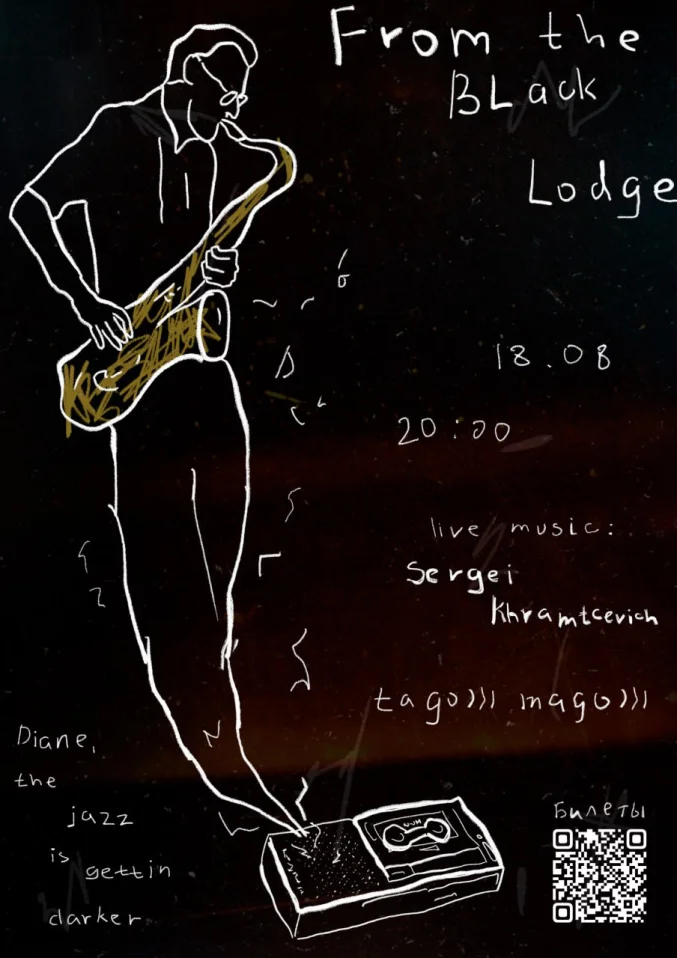 From the
BLack
Lodge
18.08
20:00
live music:
Sergei
Khramtcevich
tago))) mago)))
Diane,
the
jazz
is gettin
darker
Билеты